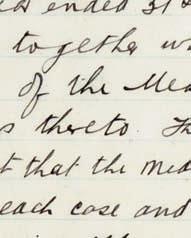 ended 31st
together w
of the Mea
s thereto. Th
t that the med
each case and